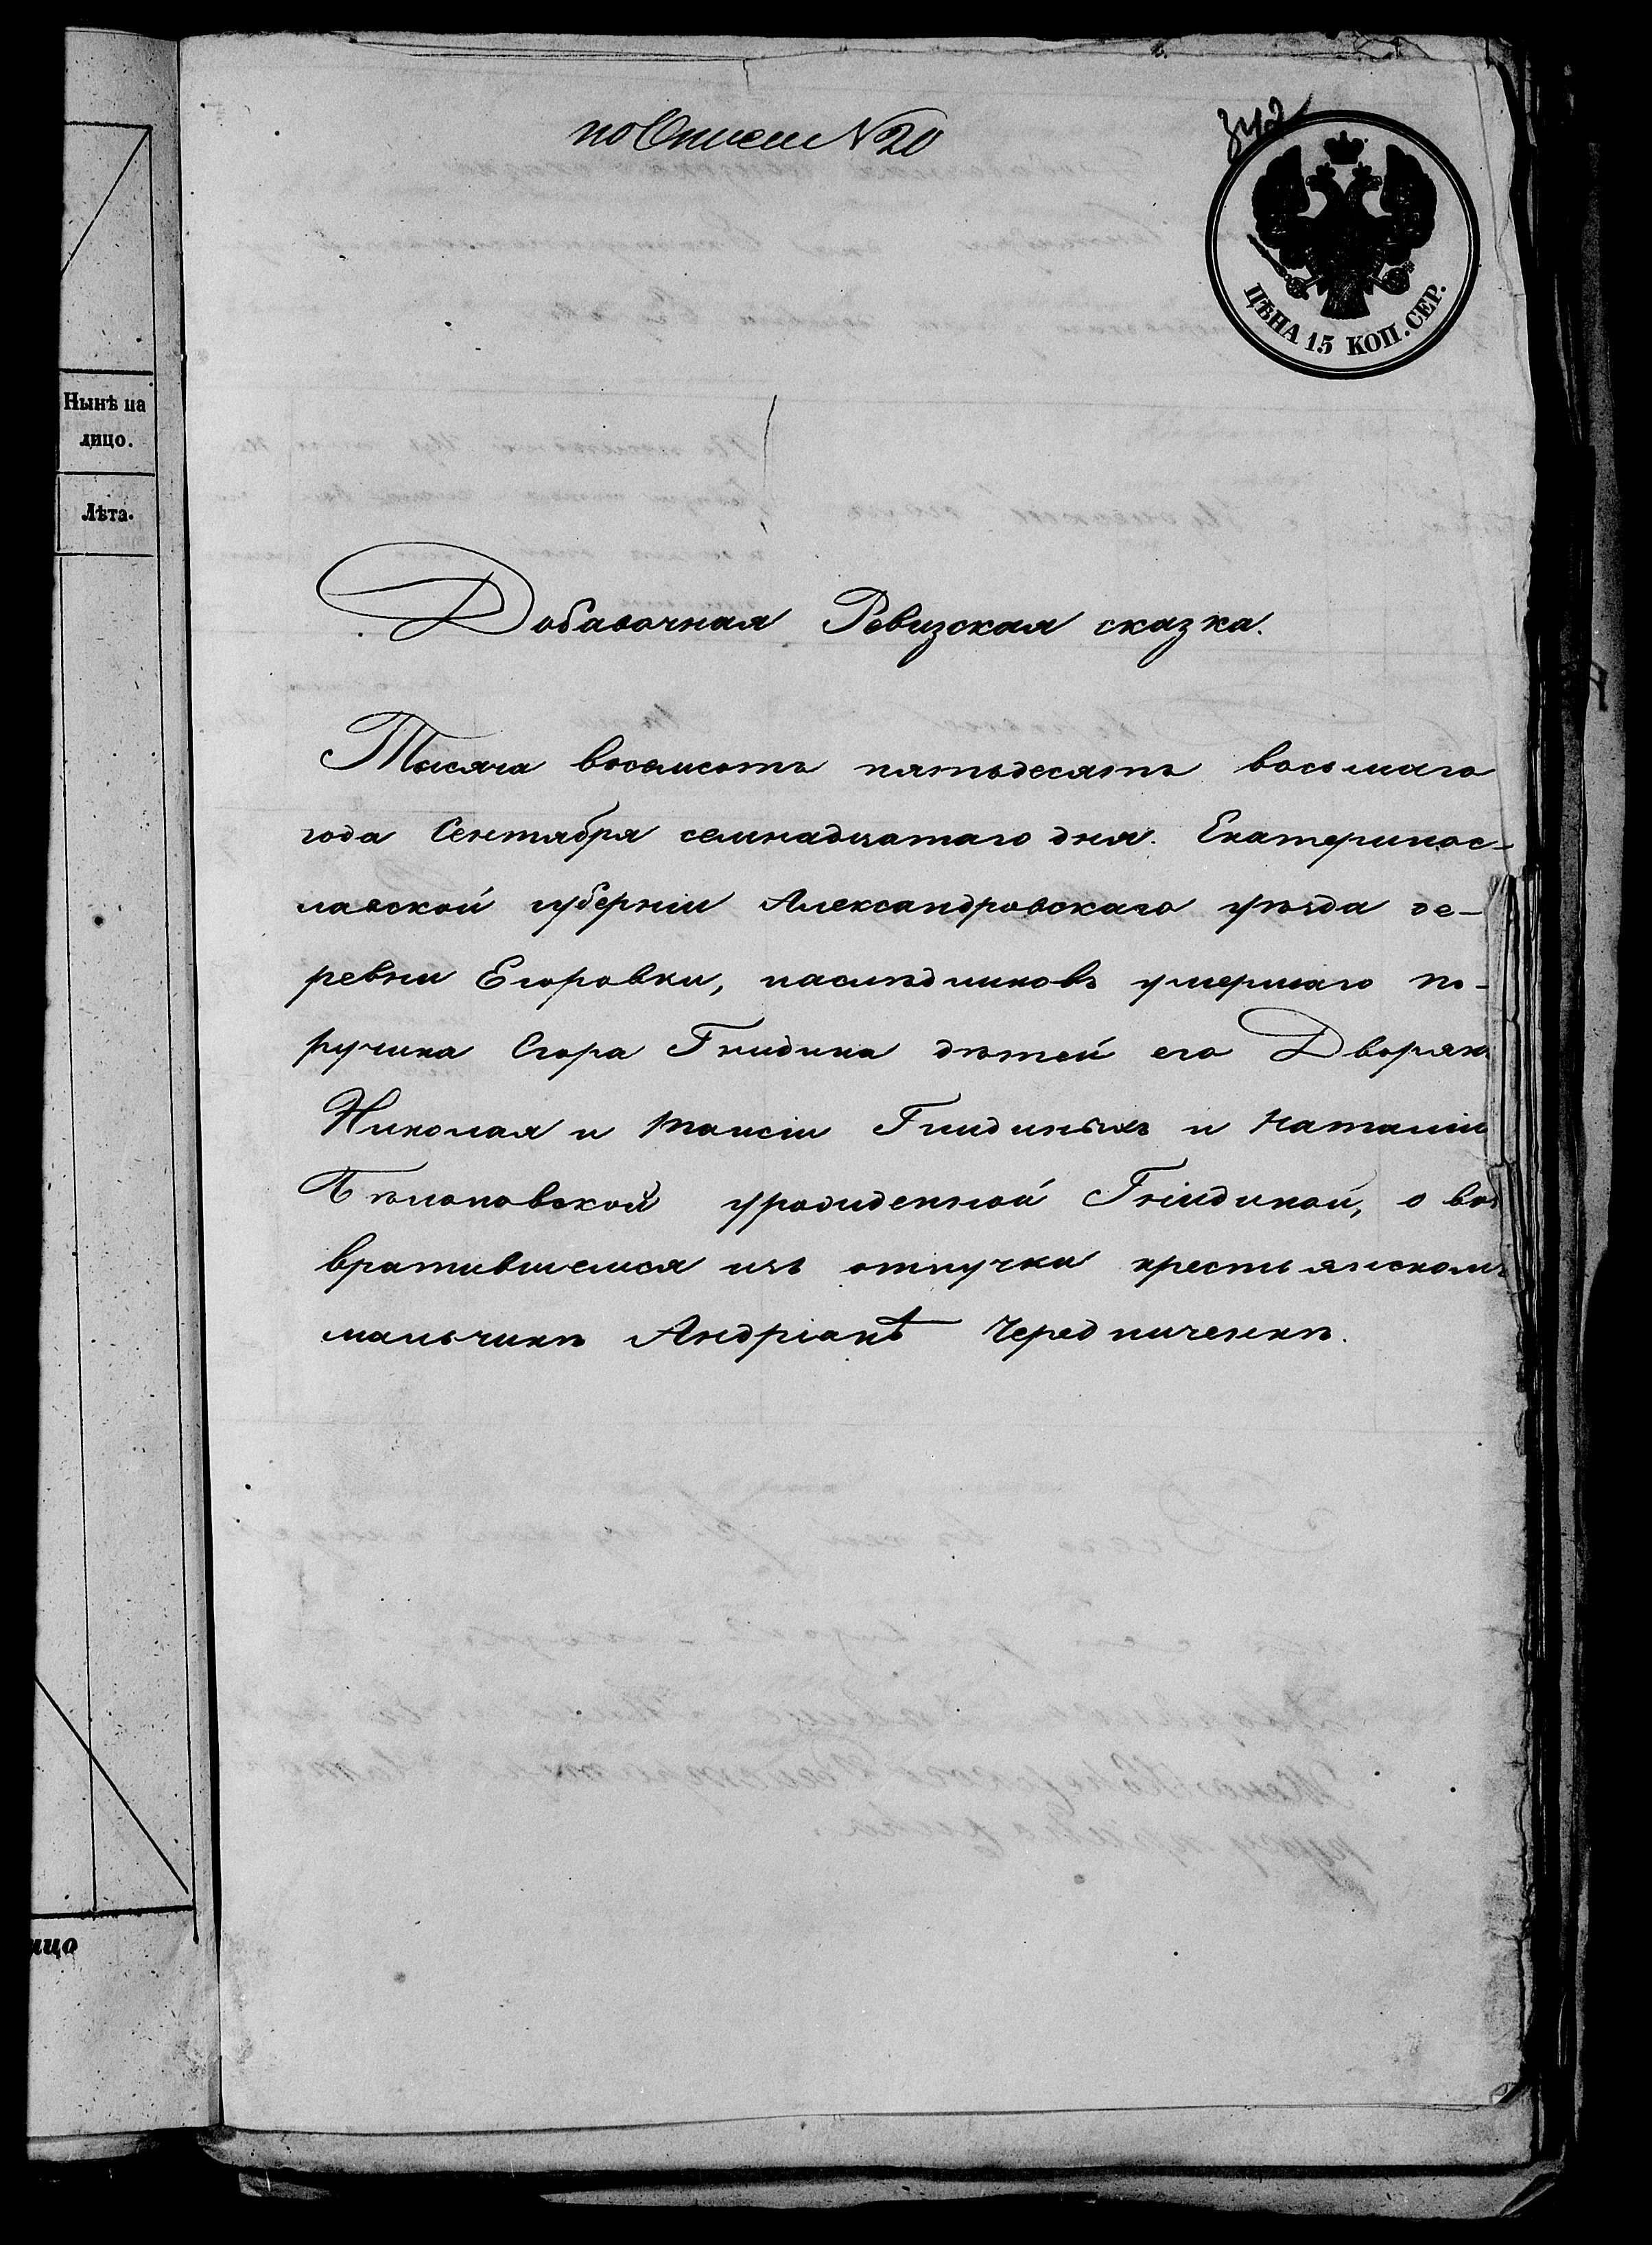 по Описи № 20
ЦѢНА 15 КОП. СЕР.
Нынѣ на
лицо.
Лѣта.
Добавочная Ревизская сказка.
Тысяча восемсотъ пятьдесятъ восьмаго
года Сентября семнадцатаго дня. Екатеринос-
лавской губерніи Александровскаго уѣзда де-
ревни Егоровки, наслѣдниковъ умершаго по-
ручика Егора Гнидина дѣтей его Дворянъ
Николая и Таисіи Гнидиныхъ и Наталіи
урожденной Гнидиной, о воз
вратившемся изъ отлучки крестьянскомъ
мальчикѣ Андріанѣ Чередниченкѣ.
ицо